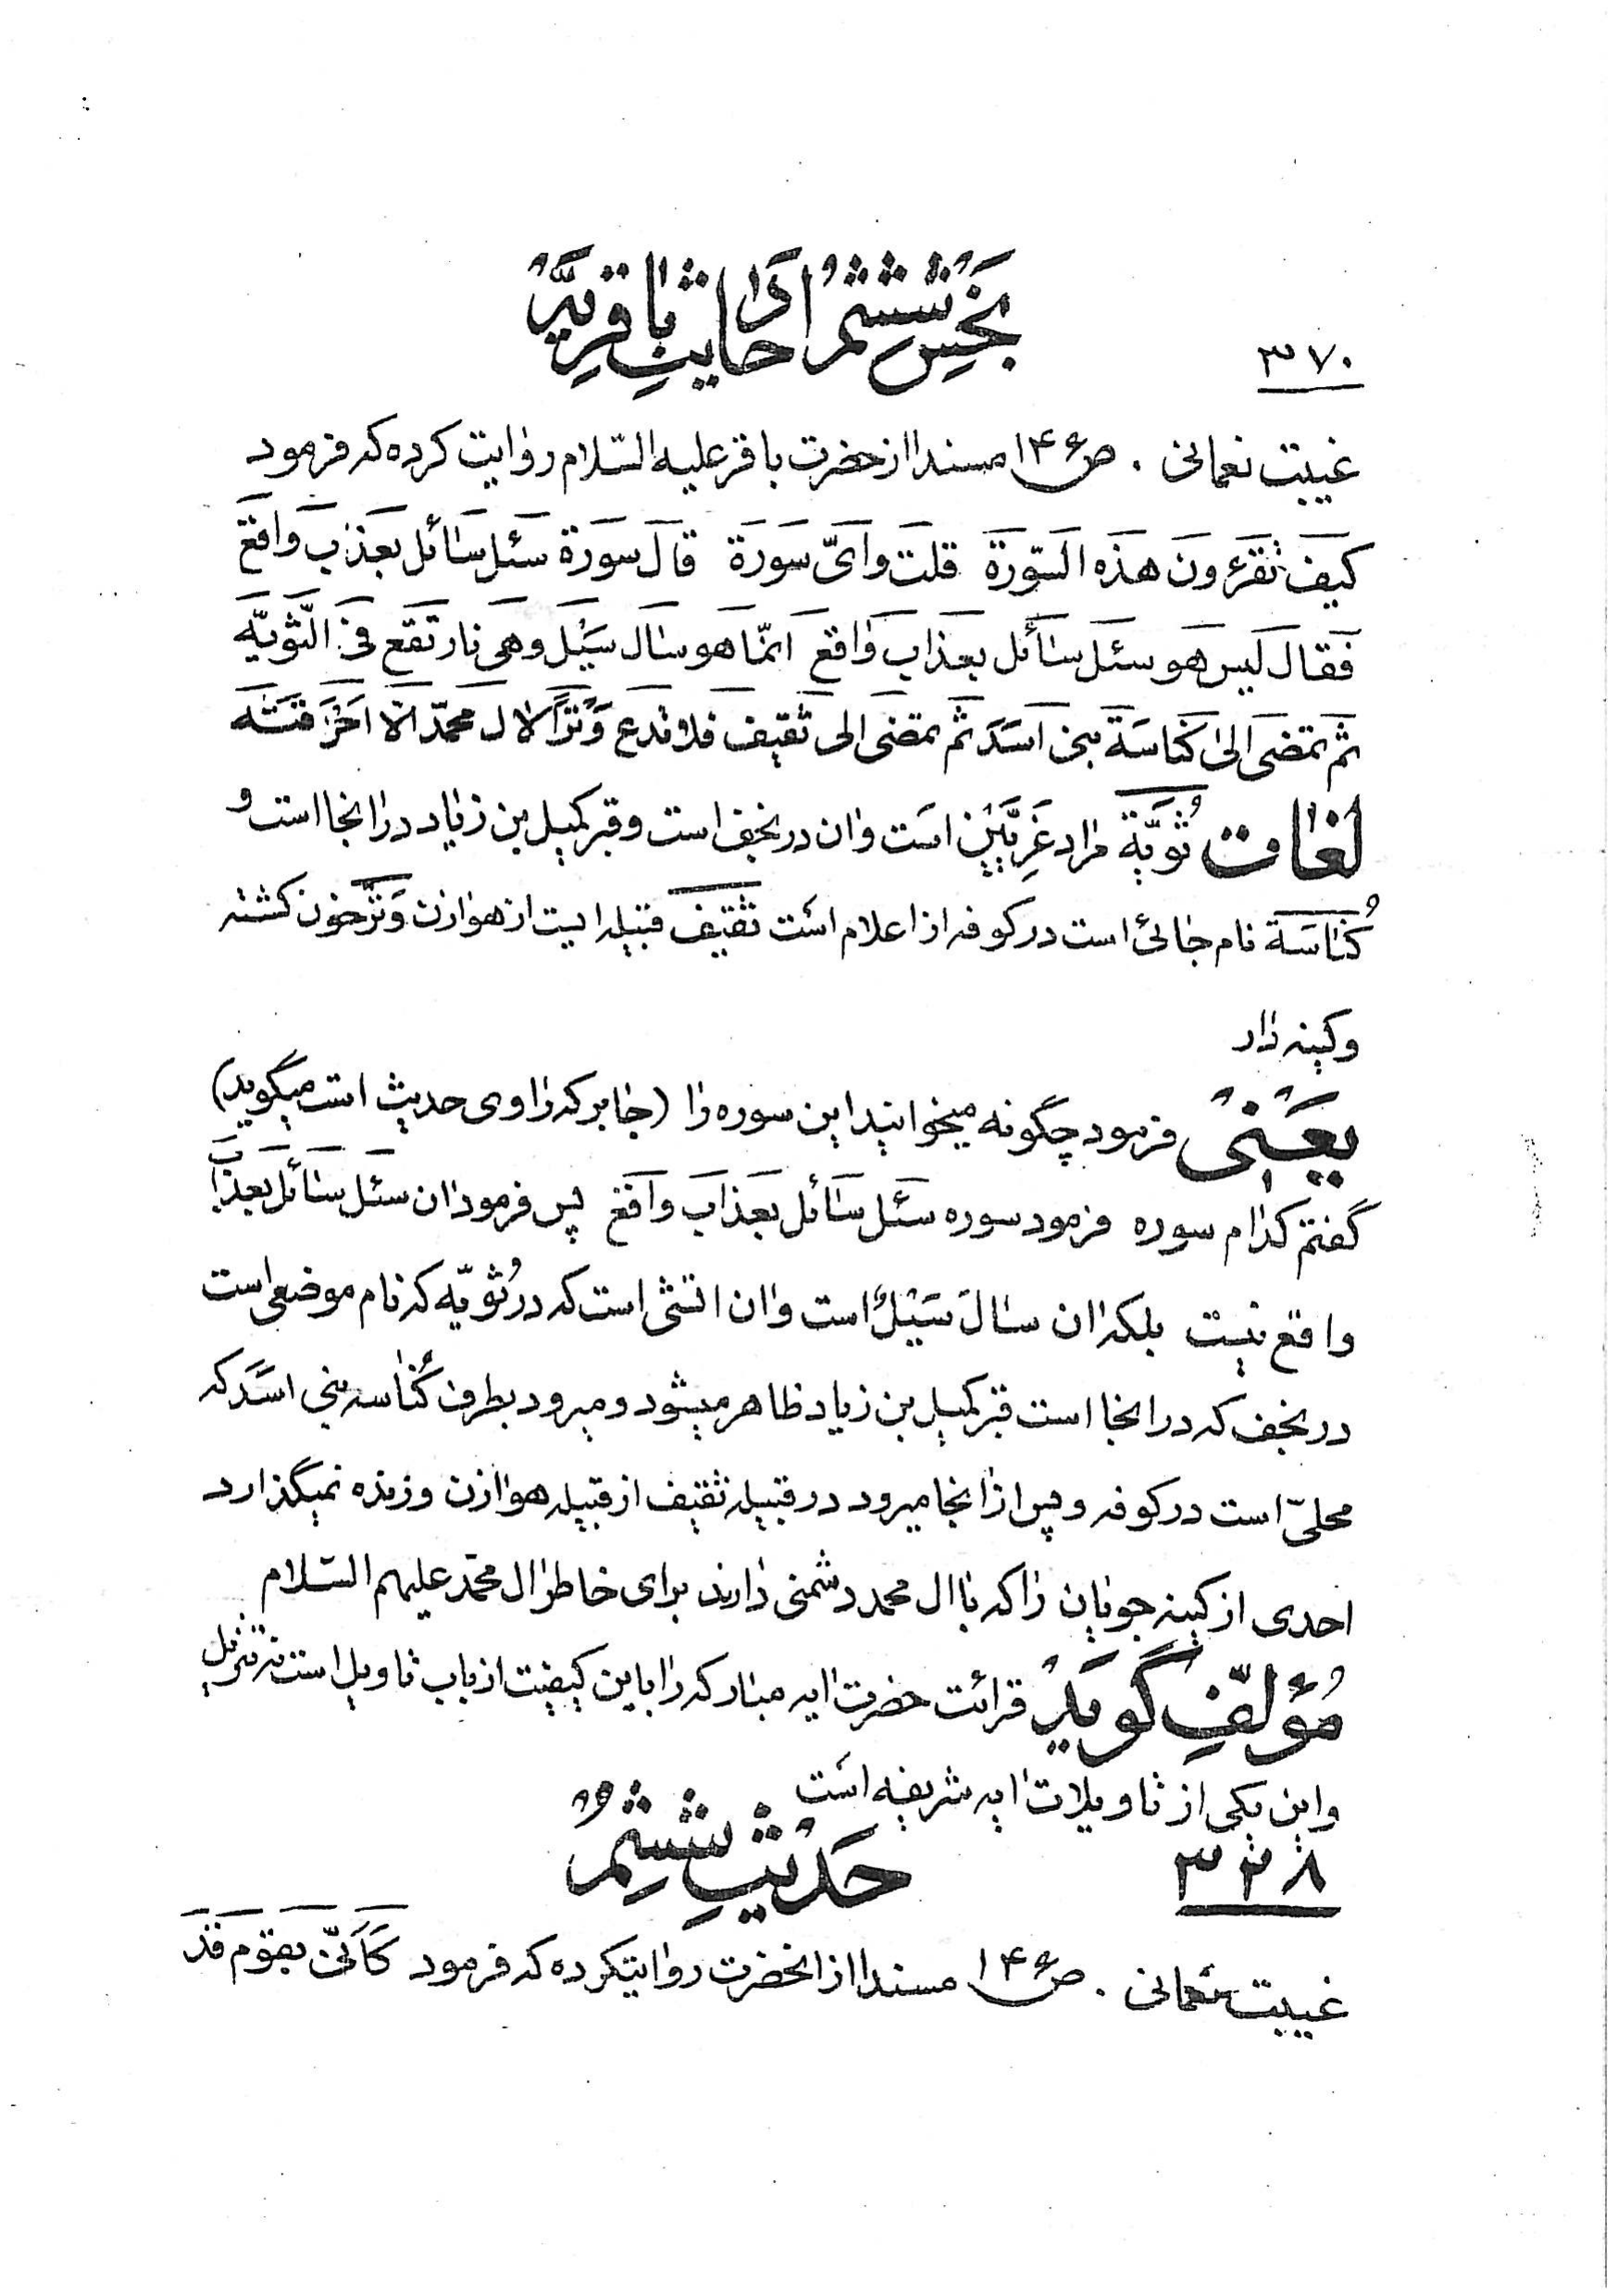 بخش ششم احادیث باقریه
۳۷۰
غیبت نعمانی . ص۱۴۶ مسندا از حضرت باقر علیه السّلام روایت کرده که فرمود
کیف تقرءون هذه السّورة قلت وایّ سورة قال سورة سئل سائل بعذاب واقع
فقال لیس هو سئل سائل بعذاب واقع انّما هو سال سیل وهی نار تقع فی الثّویّه
ثم تمضی الی کناسة بنی اسد ثم تمضی الی ثقیف فلا تدع وترا لال محمّد الّا احرقته
لغات ثویّة مراد غریّین است وان در نجف است و قبر کمیل بن زیاد در انجا است و
کُناسَة نام جائی است در کوفه از اعلام است ثقیف قبیله ایست از هوازن وتر خون کشته
و کینه دار
یعنی فرمود چگونه میخوانید این سوره را (جابر که راوی حدیث است میگوید)
گفتم کدام سوره فرمود سوره سئل سائل بعذاب واقع پس فرمود ان سئل سائل بعذاب
واقع نیست بلکه ان سال سیل است و ان اتشی است که در ثویّه که نام موضعی است
در نجف که در انجا است قبر کمیل بن زیاد ظاهر میشود و میرود بطرف کناسه بنی اسد که
محلّی است در کوفه و پس از انجا میرود در قبیله ثقیف از قبیله هوازن و زنده نمیگذارد
احدی از کینه جویان را که با ال محمد دشمنی دارند برای خاطر ال محمّد علیهم السّلام
مؤلّف گوید قرائت حضرت ایه مبارکه را باین کیفیت از باب تاویل است نه تنزیل
و این یکی از تاویلات ایه شریفه است
۳۲۸ حدیث ششم
غیبت نعمانی . ص۱۴۶ مسندا از انحضرت روایتکرده که فرمود کَاَنّی بقوم قد